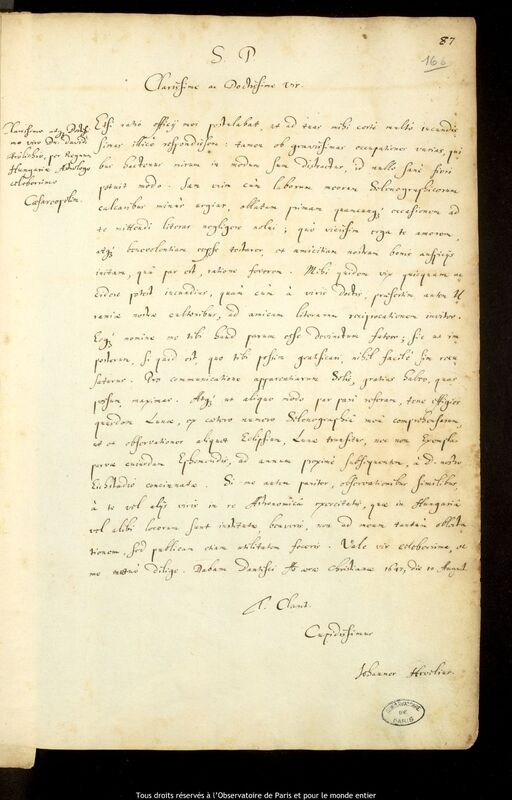 87
166
S. P.
Clarissime ac Doctissime Vir.
Clarissimo atq; Doctissi
mo viro Dn. Davidi
Frölichio, per Regnum
Hungariæ Astrologo
celeberrimo
Cæsareopolin.
Etsi ratio officij mei postulabat, ut ad tuas mihi certè multò jucundis
simas illicò respondissem: tamen ob gravissimas occupationes varias, qui
bus hactenus mirum in modum sum distractus, id nulli sanè fieri
potuit modò. Jam verò cùm laborum meorum Selenographicorum
calcaribus minùs urgear, oblatam primam quamcunq; occasionem ad
te mittendi literas negligere nolui; quo vicissim erga te amorem,
atq; benevolentiam meam testarer, et amicitiam nostram bonis auspicijs
initam, quâ par est, ratione foverem. Mihi quidem vix quicquam ac
cidere potest jucundius, quàm cùm à viris doctis, præsertim autem U
raniæ nostræ cultoribus, ad amicam literarum reciprocationem invitor.
Eoq; nomine me tibi haud parum esse devinctum fateor; sic ut in
posterum, si quid est, quo tibi possim gratificari, nihil facilè sim recu
saturus. Pro communicatione apparentiarum Solis, gratias habeo, quas
possum maximas. Atq; ut aliquo modo par pari referam, tene effigies
quasdam Lunæ, ex cætero numero Selenographiâ meâ comprehensarum,
ut et observationes aliquot Eclipsium, Lunæ transitus, nec non Exemplar
parvæ cujusdam Ephemeridis, ad annum proximè subsequentem, à D. nostro
Eichstadio concinnatæ. Si me autem pariter, observationibus similibus,
à te vel alijs viris in re Astronomicâ exercitatis, quæ in Hungariâ
vel alibi locorum sunt institutæ, beaveris, non ad meam tantùm oblecta
tionem, sed publicam etiam utilitatem feceris. Vale vir celeberrime, et
me mutuò dilige. Dabam Dantisci æræ Christianæ 1647, die 10 August.
T. Clarit.
Cupidissimus
Johannes Hevelius.
OBSERVATOIRE DE PARIS
Tous droits réservés à l'Observatoire de Paris et pour le monde entier